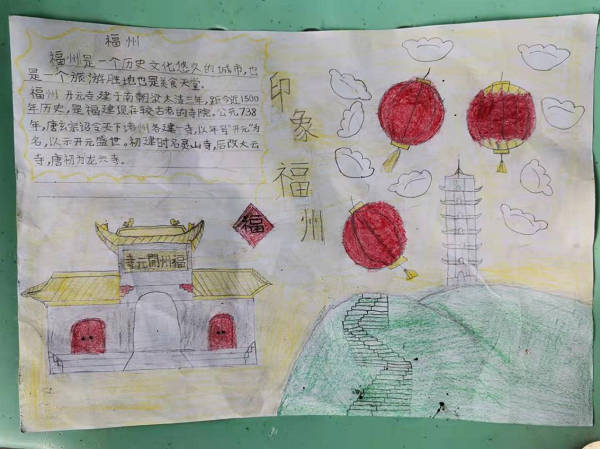 福州
福州是一个历史文化悠久的城市,也
是一个旅游胜地也是美食天堂。
福州 开元寺建于南朝梁太清三年,距今近1500
年历史,是福建现存较古老的寺院。公元738
年,唐玄宗诏令天下诸州各建一寺,以年号"开元"为
名,以示开元盛世。初建时名灵山寺,后改大云
寺,唐初为龙兴寺。
印象福州
福
寺元開州福